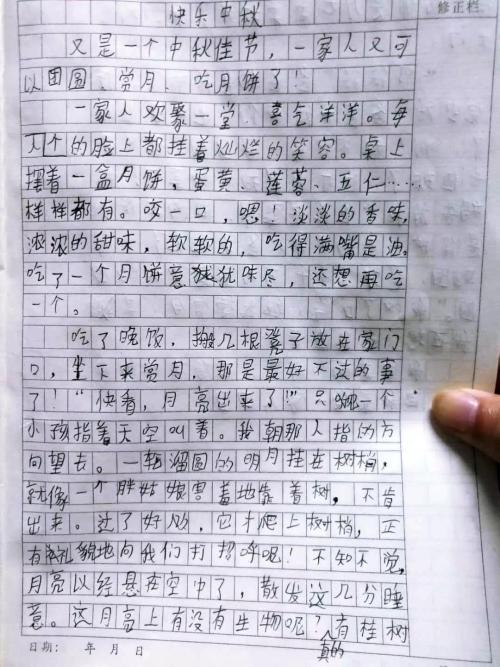 快乐中秋
修正栏
又是一个中秋佳节，一家人又可
以团圆、赏月、吃月饼了！
一家人欢聚一堂、喜气洋洋。每
个的脸上都挂着灿烂的笑容。桌上
摆着一盒月饼，蛋黄、莲蓉、五仁……
样样都有。咬一口，嗯！淡淡的香味，
浓浓的甜味，软软的，吃得满嘴是油。
吃了一个月饼意犹犹味尽，还想再吃
一个。
吃了晚饭，搬几根凳子放在家门
口，坐下来赏月，那是最好不过的事
了！“快看，月亮出来了！”只一个
小孩指着天空叫着。我朝那人指的方
向望去。一轮溜圆的明月挂在树梢，
就像一个胖姑娘害羞地靠着树，不肯
出来。过了好久，它才爬上树梢，正
有礼貌地向我们打招呼呢！不知不觉，
月亮以经悬在空中了，散发这几分睡
意。这月亮上有没有生物呢？真的有桂树
日期： 年 月 日